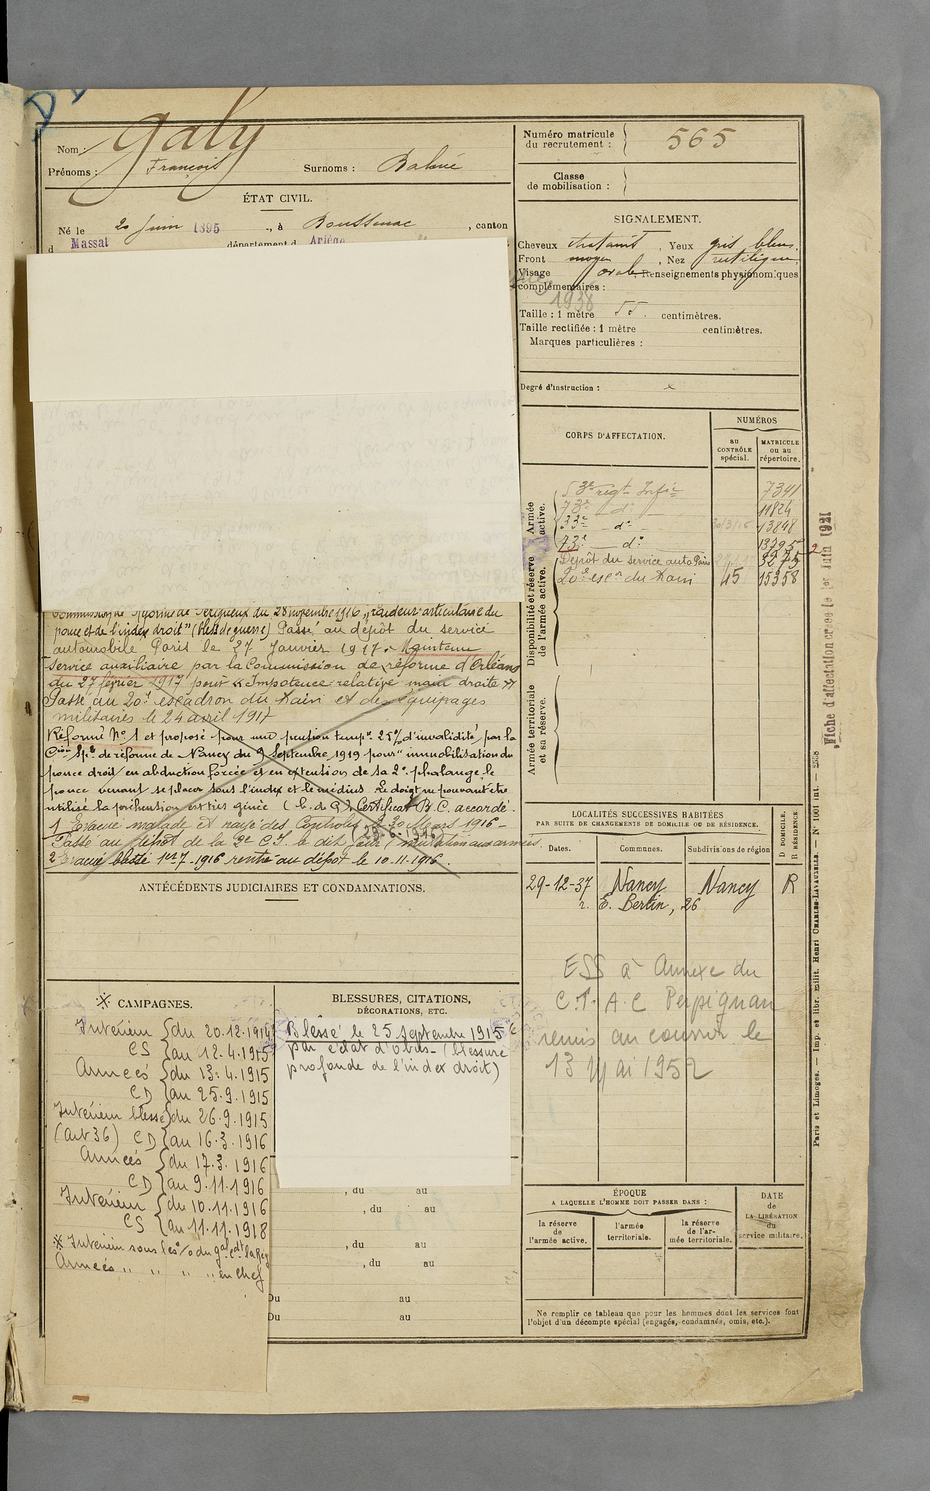 Nom : Galy
Prénoms : François Surnoms :
ÉTAT CIVIL.
Né le 20 Juin 1895, à Boussenac, canton
d Massat département d Ariège
Numéro matricule du recrutement : 565
Classe de mobilisation :
SIGNALEMENT.
Cheveux chatains, Yeux gris bleus
Front moyen, Nez rectiligne
Visage oval Renseignements physionomiques
complémentaires :
1938
Taille : 1 mètre 55 centimètres.
Taille rectifiée : 1 mètre centimètres.
Marques particulières :
Degré d'instruction :
CORPS D'AFFECTATION.
NUMÉROS
au CONTRÔLE spécial.
MATRICULE ou au répertoire.
Armée active.
53e regt Infie 7341
73e do 11824
33e do 13848
73e do
Disponibilité et réserve de l'armée active.
Dépôt du service auto Paris
20e escon du Train 45 15358
Armée territoriale et sa réserve.
Commission de réforme de Périgueux du 28 novembre 1916 "raideur articulaire du
pouce et de l'index droit" (bles. de guerre) Passé au dépôt du service
automobile Paris le 27 Janvier 1917. Maintenu
service auxiliaire par la Commission de réforme d'Orléans
du 27 février 1917 pour « Impotence relative main droite »
Passé au 20e escadron du Train et des équipages
militaires le 24 avril 1917
Réformé No 1 et proposé pour une pension tempre 25% d'invalidité, par la
Con Sple de réforme de Nancy du 9 Septembre 1919 pour "immobilisation du
pouce droit en abduction forcée et en extension de sa 2e phalange, le
pouce venant se placer sous l'index et le médius. Le doigt ne pouvant être
utilisé la préhension est très gênée (b. de G.) Certificat B.C. accordé.
1 Evacué malade et rayé des Contrôles le 30 Mars 1916 -
Passé au dépôt de la 9e C.I. le dit jour (mutation aux armées
29-6-1916)
2 Evacué blessé 1er 7-1916 rentré au dépôt le 10-11-1916.
ANTÉCÉDENTS JUDICIAIRES ET CONDAMNATIONS.
LOCALITÉS SUCCESSIVES HABITÉES
PAR SUITE DE CHANGEMENTS DE DOMICILE OU DE RÉSIDENCE.
Dates. Communes. Subdivisions de région
D DOMICILE. R RÉSIDENCE
29-12-37 Nancy Nancy R
r. E. Bertin, 26
ESS à Annexe du
C.T.A.C Perpignan
remis au courrier le
13 Mai 1952
※ CAMPAGNES.
Intérieur du 20.12.1914
CS au 12.4.1915
Armées du 13.4.1915
CD au 25.9.1915
Intérieur blessé du 26.9.1915
(art 36) CD au 16.3.1916
Armées du 17.3.1916
CD au 9.11.1916
Intérieur du 10.11.1916
CS au 11.11.1918
※ Intérieur sous les o/o du gal cdt la Rég
Armées " " " " en Chef
BLESSURES, CITATIONS,
DÉCORATIONS, ETC.
Blessé le 25 septembre 1915
par éclat d'obus - (blessure
profonde de l'index droit)
, du au
, du au
, du au
, du au
Du au
Du au
ÉPOQUE
A LAQUELLE L'HOMME DOIT PASSER DANS :
la réserve de l'armée active.
l'armée territoriale.
la réserve de l'armée territoriale.
DATE de LA LIBÉRATION du service militaire.
Ne remplir ce tableau que pour les hommes dont les services font
l'objet d'un décompte spécial (engagés, condamnés, omis, etc.).
Fiche d'affectation créée le 1er Juin 1921
Paris et Limoges. — Imp. et libr. milit. Henri CHARLES-LAVAUZELLE. — N° 1001 int. —